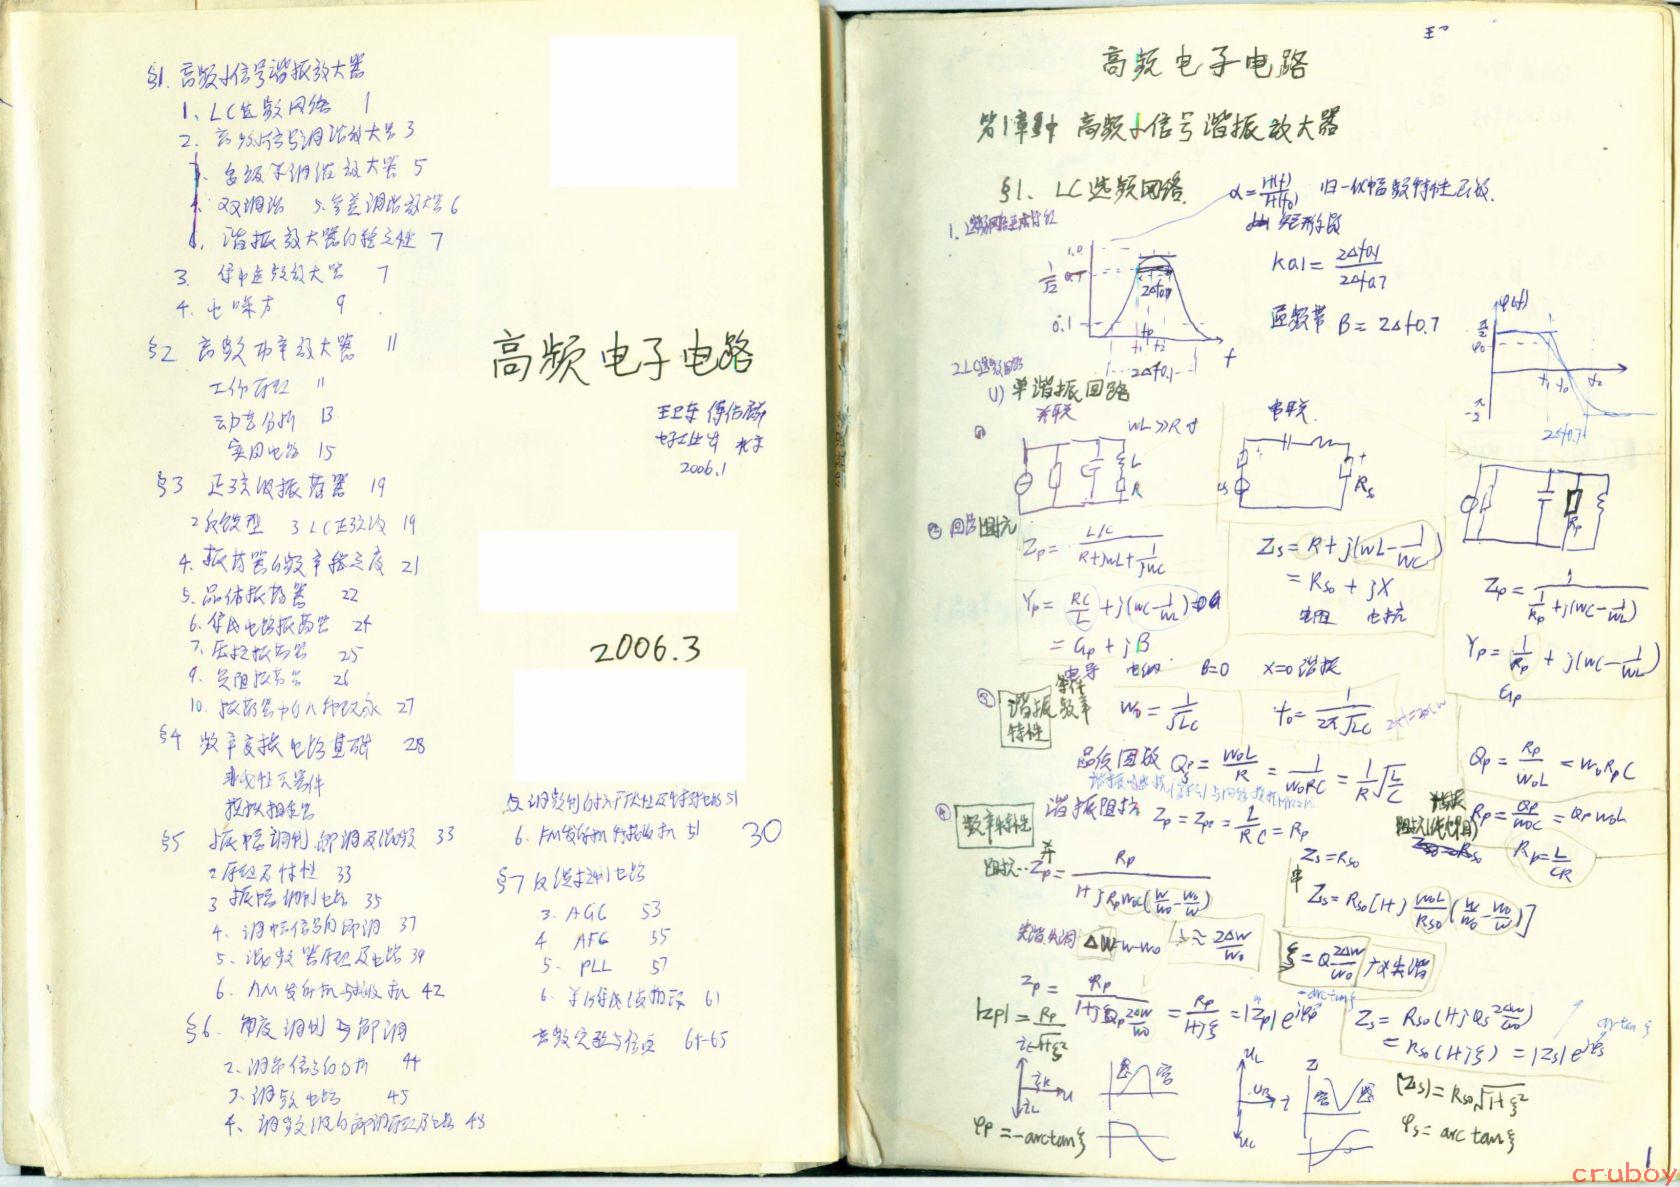 §1. 高频小信号谐振放大器
1、LC选频网络 1
2. 高频小信号调谐放大器 3
3. 多级单调谐放大器 5
4. 双调谐 5. 参差调谐放大器 6
6. 谐振放大器的稳定性 7
3. 集中选频放大器 7
4. 电噪声 9
§2 高频功率放大器 11
工作原理 11
动态分析 13
实用电路 15
§3 正弦波振荡器 19
2 反馈型 3 LC正弦波 19
4. 振荡器的频率稳定度 21
5. 晶体振荡器 22
6. 集成电路振荡器 24
7. 压控振荡器 25
9. 负阻振荡器 26
10. 振荡器中的几种现象 27
§4 频率变换电路基础 28
非线性元器件
模拟相乘器
§5 振幅调制、解调及混频 33
2 原理及特性 33
3 振幅调制电路 35
4、调幅信号的解调 37
5、混频器原理及电路 39
6. AM发射机与接收机 42
§6. 角度调制与解调
2. 调角信号的分析 44
3. 调频电路 45
4、调频波的解调原理及电路 48
高频电子电路
王卫东 傅佑麟
电子工业出 北京
2006.1
2006.3
51
6. FM发射机 接收机 51
30
§7 反馈控制电路
3. AGC 53
4 AFC 55
5. PLL 57
6. 单片集成锁相环 61
高频实验与仿真 64-65
高频电子电路
第1章 高频小信号谐振放大器
§1. LC选频网络.
α=H(f)/H(f0) 归一化幅频特性函数.
矩形系数
K0.1 = 2Δf0.1/2Δf0.7
通频带 B = 2Δf0.7
1.0
1/√2 0.7
0.1
2Δf0.7
f1 f0 f2
2Δf0.1
f
φ(f)
π/2
φ0
-π/2
f1 f0 f2
2Δf0.7
2.LC选频回路
(1) 单谐振回路
并联 串联.
① ωL≫R 时
L
R
Rs
Rp
② 回路阻抗
Zp = (L/C)/(R+jωL+1/jωC)
Zs = R + j(ωL-1/ωC)
= Rs0 + jX
电阻 电抗
Yp = RC/L + j(ωC-1/ωL)
= Gp + jB
电导 电纳 B=0 X=0 谐振
Zp = 1/(1/Rp + j(ωC-1/ωL))
Yp = 1/Rp + j(ωC-1/ωL)
Gp
③ 谐振特性
条件
频率
ω0 = 1/√LC
f0 = 1/(2π√LC)
品质因数 Qp = ω0L/R = 1/(ω0RC) = 1/R √(L/C)
Qp = Rp/(ω0L) = ω0RpC
谐振阻抗 Zp = Zp0 = L/(RC) = Rp
谐振阻抗(纯电阻)
Rp = Qp/(ω0C) = Qpω0L
Rp = L/(CR)
④ 频率特性
阻抗..
并
Zp = Rp/(1+jRpω0C(ω/ω0-ω0/ω))
Zs = Rs0
串
Zs = Rs0[1+j ω0L/Rs0 (ω/ω0-ω0/ω)]
失谐 失调 Δω=ω-ω0
≈ 2Δω/ω0
ξ = Q 2Δω/ω0 广义失谐
Zp = Rp/(1+jQp 2Δω/ω0) = Rp/(1+jξ) = |Zp| e^jφp
-arctanξ
|Zp| = Rp/√(1+ξ²)
Zs = Rs0(1+jQs 2Δω/ω0)
= Rs0(1+jξ) = |Zs| e^jφs
arctanξ
|Zs| = Rs0√(1+ξ²)
φp = -arctanξ
φs = arctanξ
1
cruboy